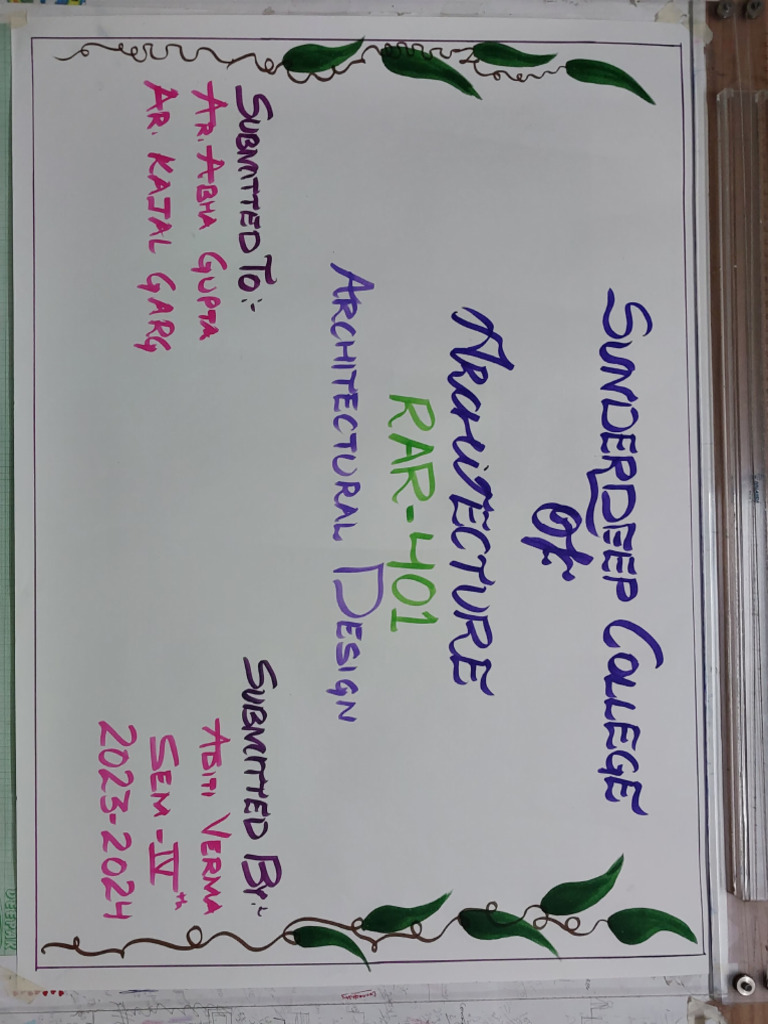 SUNDERDEEP COLLEGE
Of
ARCHITECTURE
RAR-401
ARCHITECTURAL DESIGN
SUBMITTED TO:-
AR. ABHA GUPTA
AR. KAJAL GARG
SUBMITTED BY:-
ADITI VERMA
SEM-IVth
2023-2024